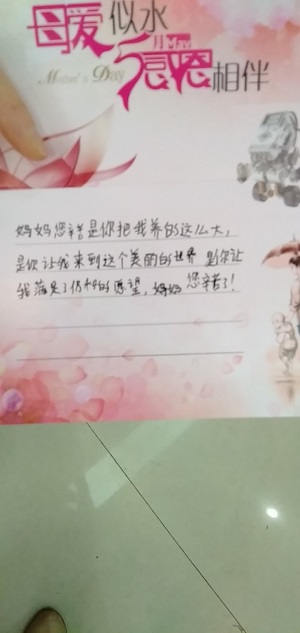 母爱似水
5月May感恩相伴
Mother's Day
妈妈您辛苦是你把我养的这么大，
是你让我来到这个美丽的世界 是你让
我满足了仍和的愿望，妈妈 您辛苦了！